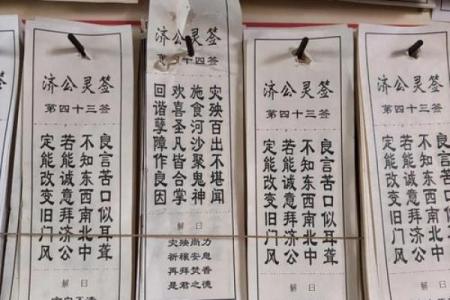 济公灵签
第四十三签
良言苦口似耳聋
不知东西南北中
若能诚意拜济公
定能改变旧门风
解曰
济公灵签
十四签
灾殃百出不堪闻
施食河沙聚鬼神
欢喜圣凡皆合掌
回谐孽障作良因
解曰
灾殃尚力
祈禳安息
再拜焚香
是君之德
济公灵签
第四十三签
良言苦口似耳聋
不知东西南北中
若能诚意拜济公
定能改变旧门风
解曰
济公灵签
第四十三签
良言苦口似耳聋
不知东西南北中
若能诚意拜济公
定能改变旧门风
解曰